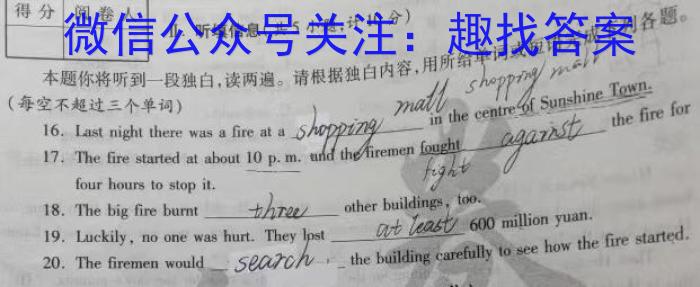 得 分 阅 卷 人
微信公众号关注：趣找答案
II. 听填信息 共 5 小题, 计 10 分)
本题你将听到一段独白,读两遍。请根据独白内容,用所给单词或短语完成下列各题。
(每空不超过三个单词)
mall shopping mall
16. Last night there was a fire at a shopping in the centre of Sunshine Town.
17. The fire started at about 10 p. m. and the firemen fought against the fire for
fight
four hours to stop it.
18. The big fire burnt three other buildings, too.
19. Luckily, no one was hurt. They lost at least 600 million yuan.
20. The firemen would search the building carefully to see how the fire started.